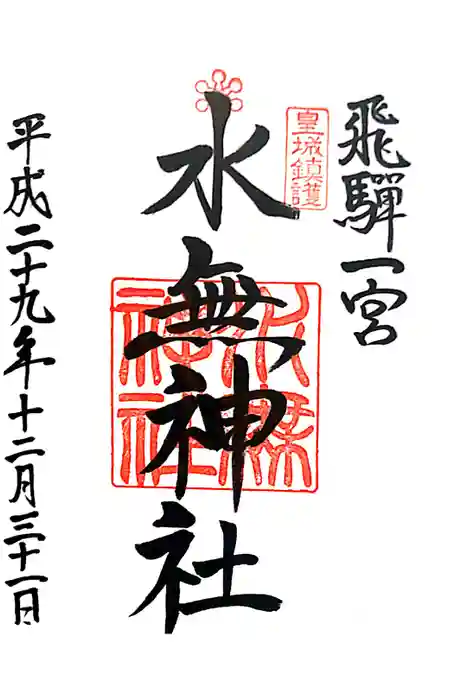 飛驒一宮
皇城鎮護
水無神社
水無神社
平成二十九年十二月三十一日